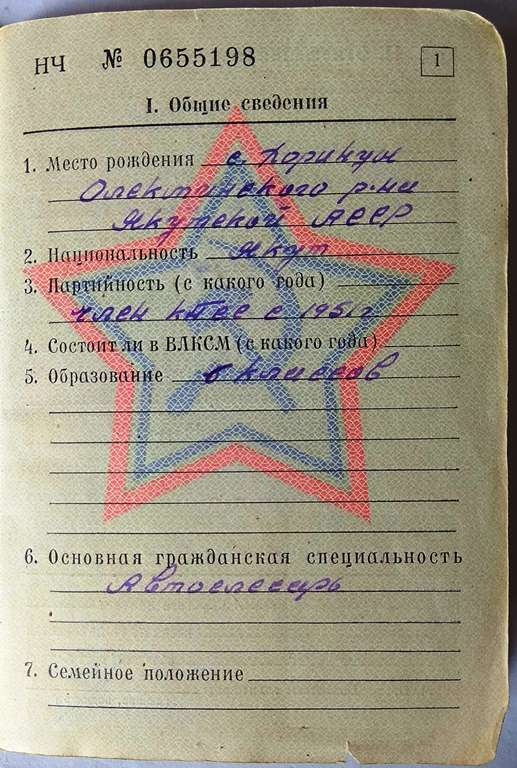 НЧ № 0655198
1
I. Общие сведения
1. Место рождения с. Дорикун
Олекминского р-на
Якутской АССР
2. Национальность якут
3. Партийность (с какого года)
член КПСС с 1951 г
4. Состоит ли в ВЛКСМ (с какого года)
5. Образование 6 классов
6. Основная гражданская специальность
Автослесарь
7. Семейное положение